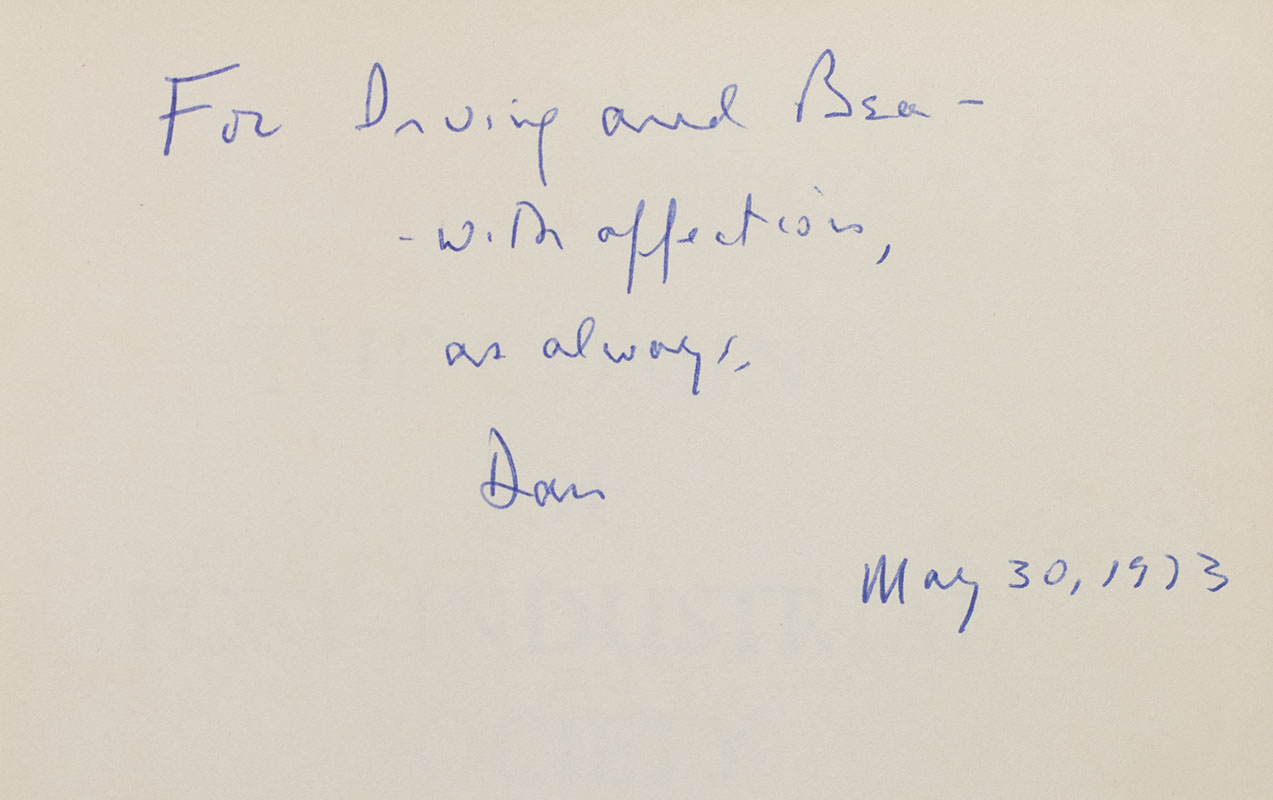 For Irving and Bea -
- with affection,
as always,
Dan
May 30, 1973